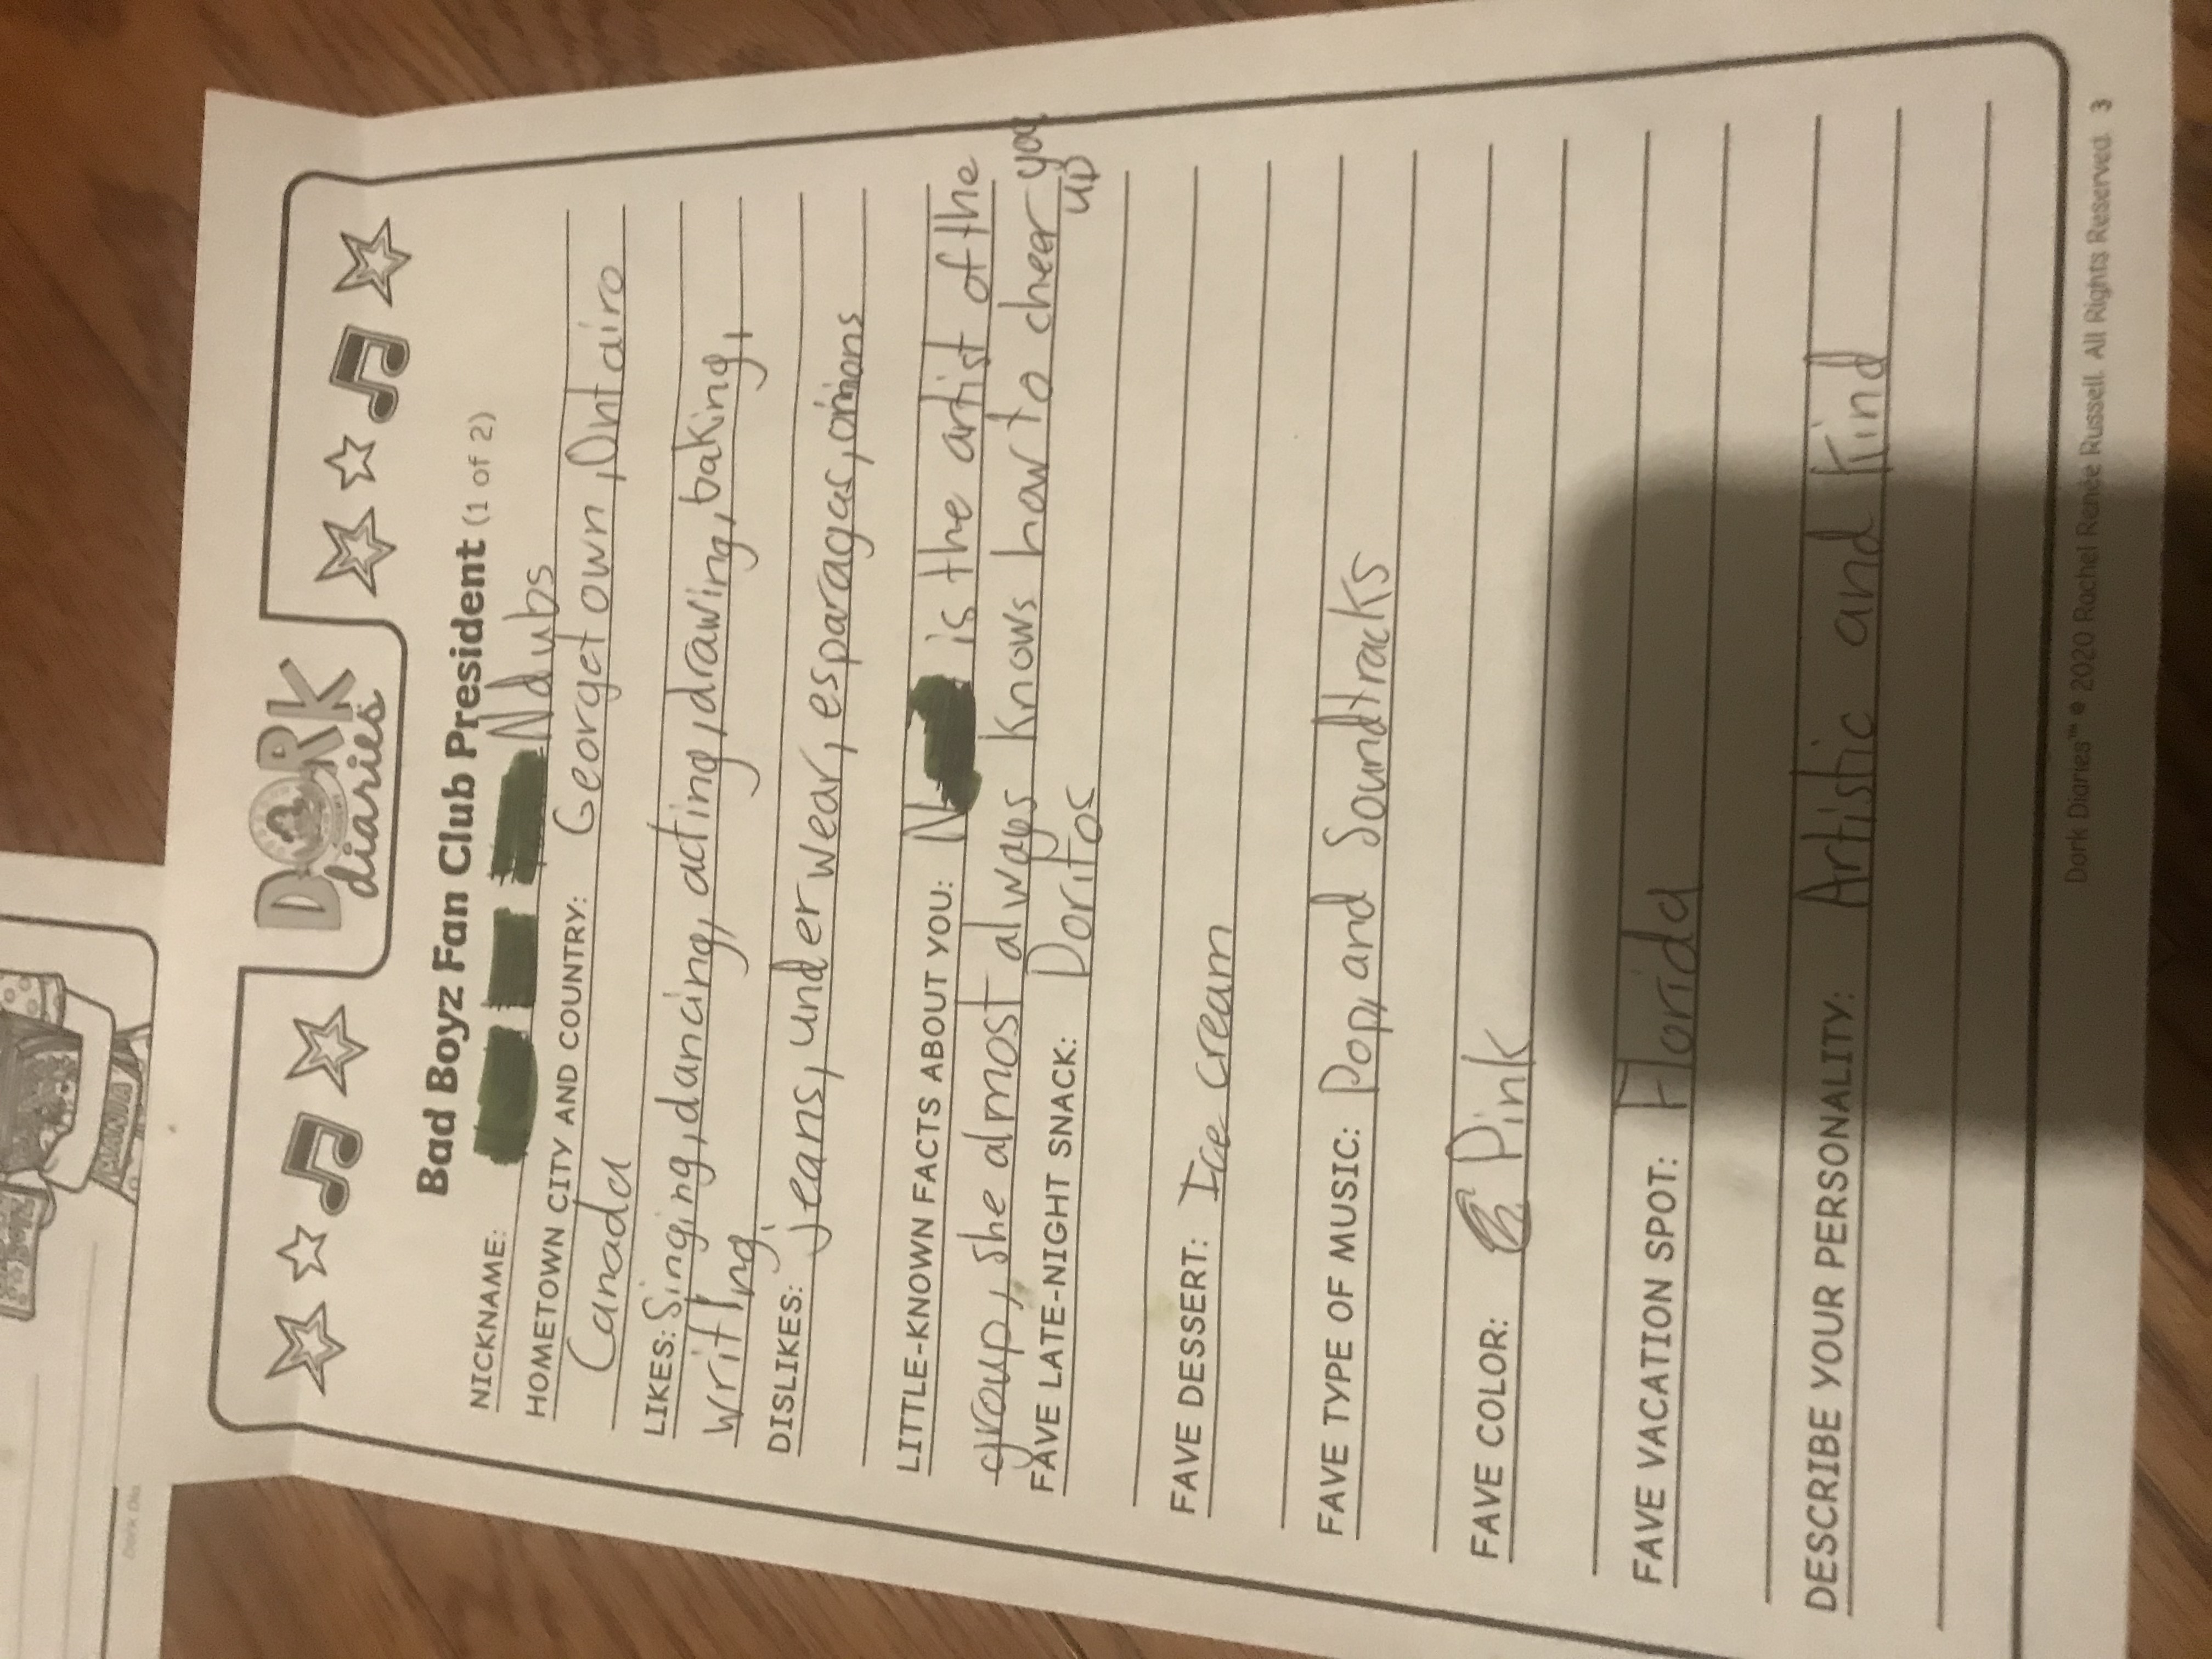 DORK
diaries
Bad Boyz Fan Club President (1 of 2)
NICKNAME: Ndubs
HOMETOWN CITY AND COUNTRY: Georgetown, Ontairo
Canada
LIKES: Singing, dancing, acting, drawing, baking,
writing.
DISLIKES: jeans, underwear, esparagas, onions
LITTLE-KNOWN FACTS ABOUT YOU: N is the artist of the
group, she almost always knows how to cheer you
up
FAVE LATE-NIGHT SNACK: Doritos
FAVE DESSERT: Ice cream
FAVE TYPE OF MUSIC: Pop, and Soundtracks
FAVE COLOR: Pink
FAVE VACATION SPOT: Florida
DESCRIBE YOUR PERSONALITY: Artistic and Kind
Dork Diaries™ © 2020 Rachel Renée Russell. All Rights Reserved. 3
MANIA
Dork Dia